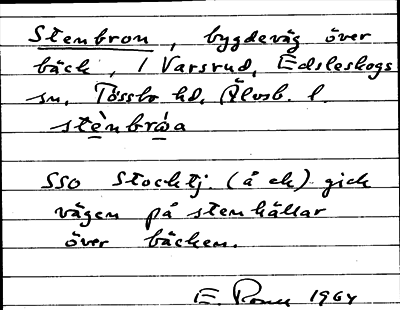 Stenbron, bygdeväg över
bäck, i Varsrud, Edsleskogs
sn, Tössbo hd, Älvsb. l.
stènbrωa
SSO Stocktj. (å ek) gick
vägen på stenhällar
över bäcken.
E. 1964